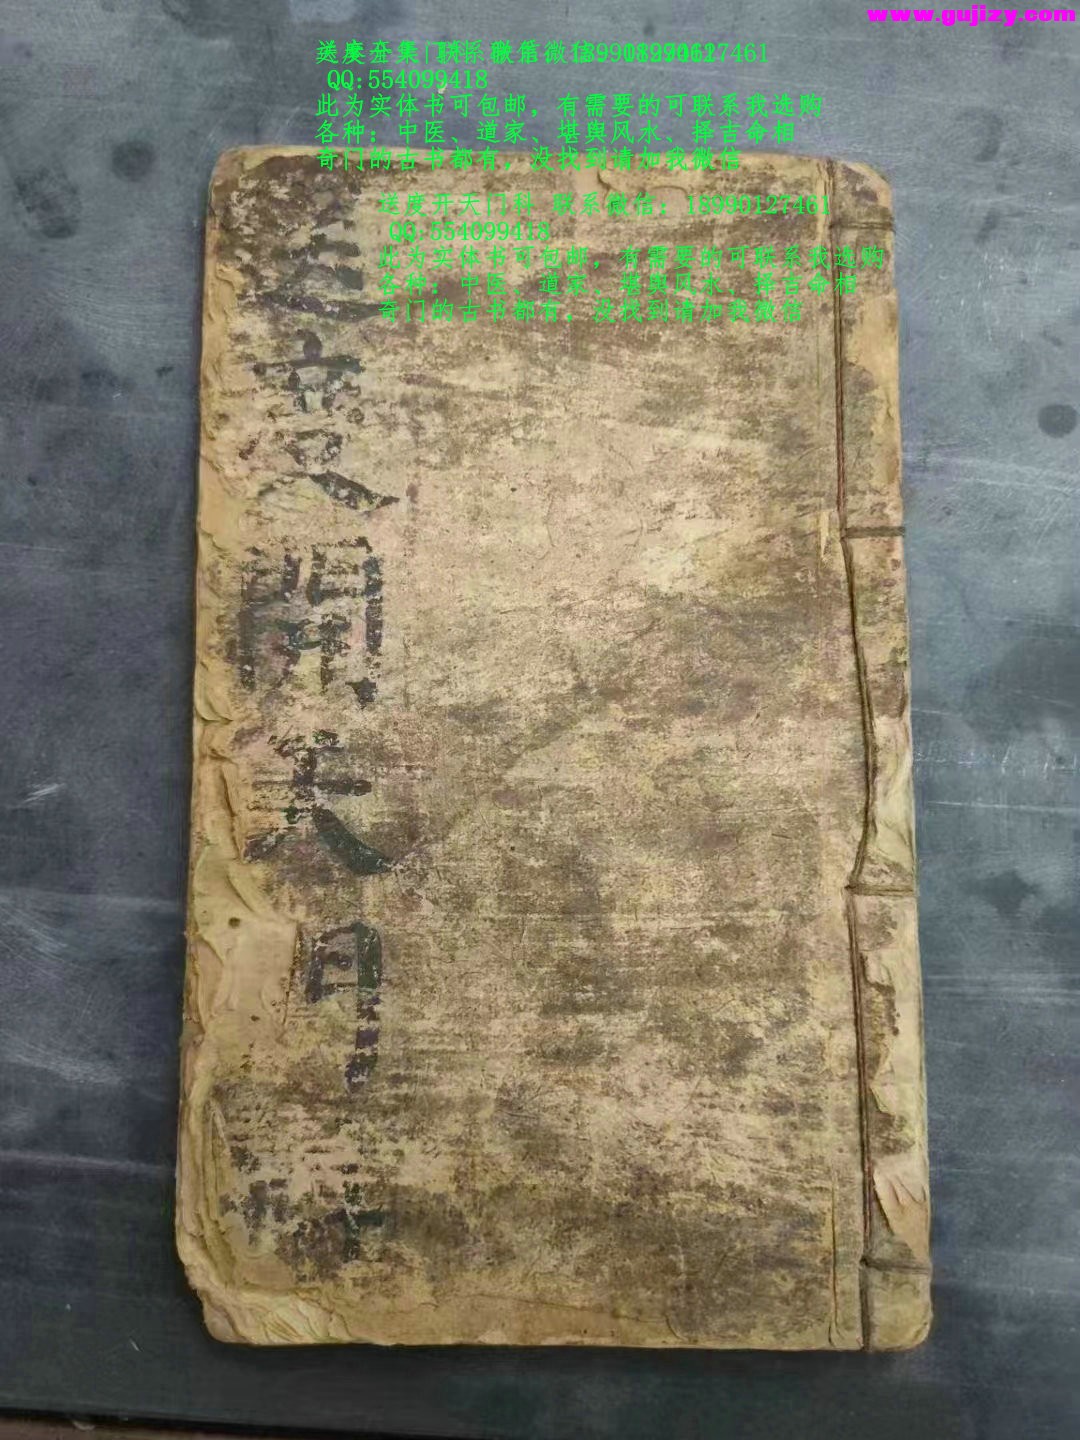 www.gujizy.com
QQ:554099418
此为实体书可包邮，有需要的可联系我选购
各种：中医、道家、堪舆风水、择吉命相
奇门的古书都有，没找到请加我微信
送度开天门科 联系微信：18990127461
QQ:554099418
此为实体书可包邮，有需要的可联系我选购
各种：中医、道家、堪舆风水、择吉命相
奇门的古书都有，没找到请加我微信
送度開天門科